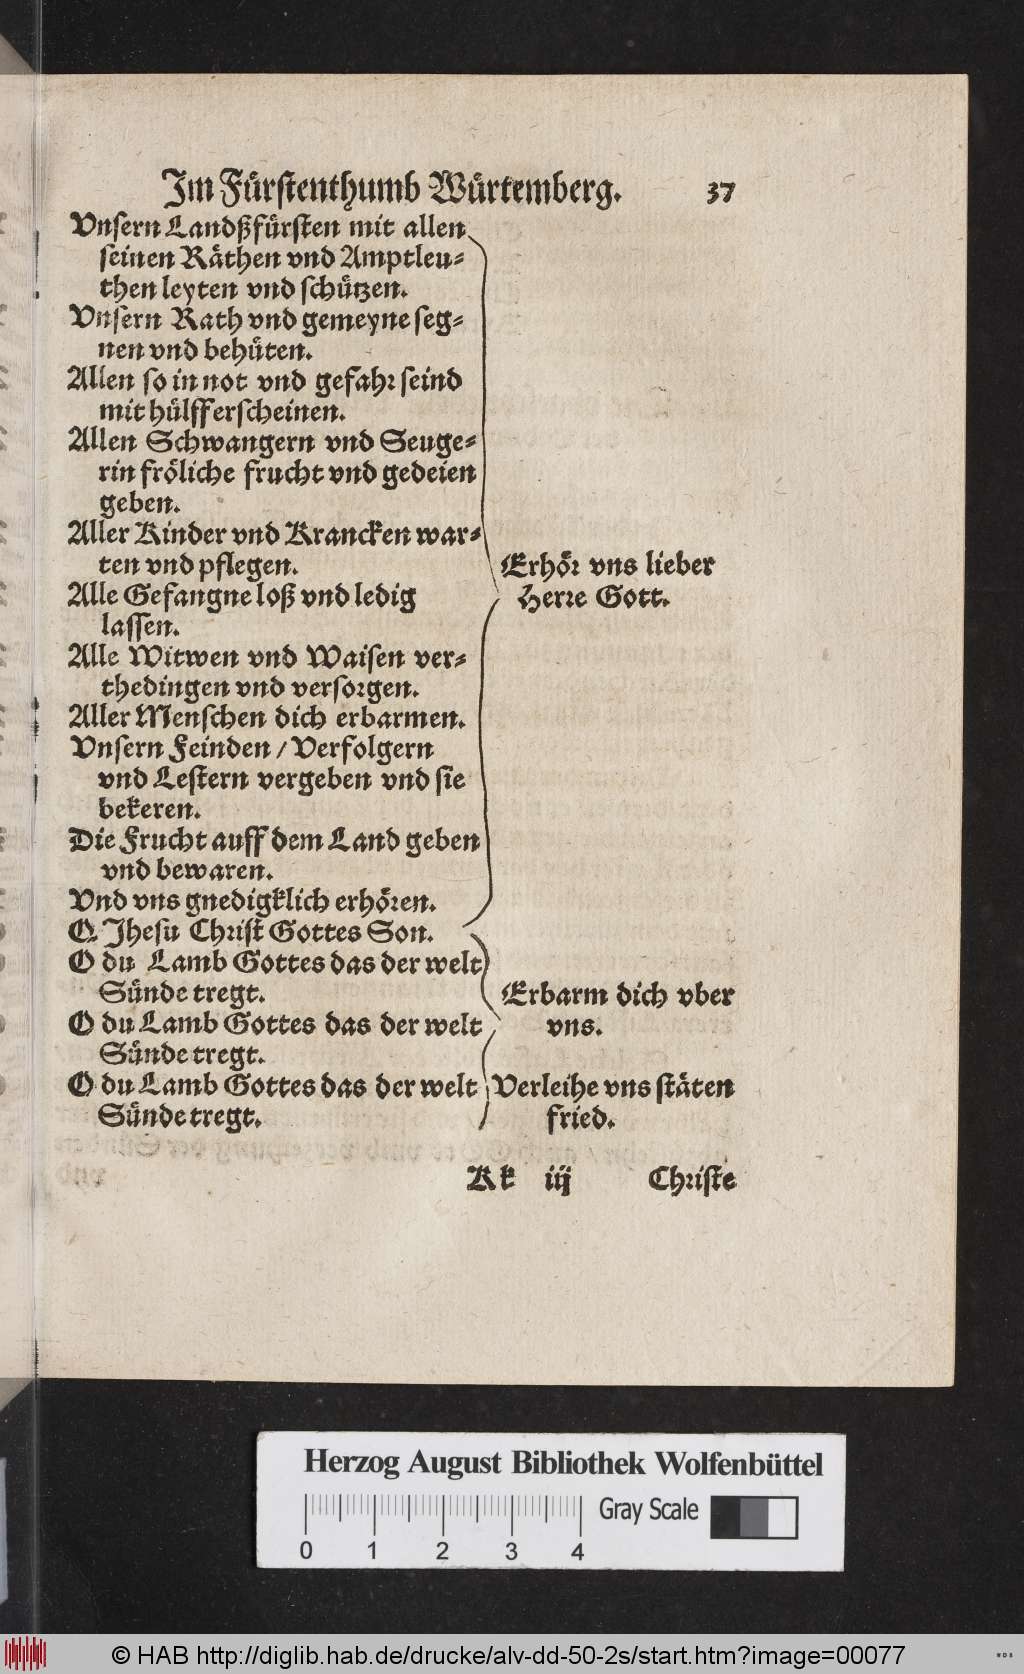 Im Fürstenthumb Würtemberg. 37
Vnsern Landßfürsten mit allen
seinen Räthen vnd Amptleu-
then leyten vnd schützen.
Vnsern Rath vnd gemeyne seg-
nen vnd behüten.
Allen so in not vnd gefahr seind
mit hülff erscheinen.
Allen Schwangern vnd Seuge-
rin fröliche frucht vnd gedeien
geben.
Aller Kinder vnd Krancken war-
ten vnd pflegen.
Alle Gefangne loß vnd ledig
lassen.
Alle Witwen vnd Waisen ver-
thedingen vnd versorgen.
Aller Menschen dich erbarmen.
Vnsern Feinden / Verfolgern
vnd Lestern vergeben vnd sie
bekeren.
Die Frucht auff dem Land geben
vnd bewaren.
Vnd vns gnedigklich erhören.
Erhör vns lieber
Herre Gott.
O Jhesu Christ Gottes Son.
O du Lamb Gottes das der welt
Sünde tregt.
O du Lamb Gottes das der welt
Sünde tregt.
Erbarm dich vber
vns.
O du Lamb Gottes das der welt
Sünde tregt.
Verleihe vns stäten
fried.
Kk iij Christe
Herzog August Bibliothek Wolfenbüttel
Gray Scale
0 1 2 3 4
© HAB http://diglib.hab.de/drucke/alv-dd-50-2s/start.htm?image=00077